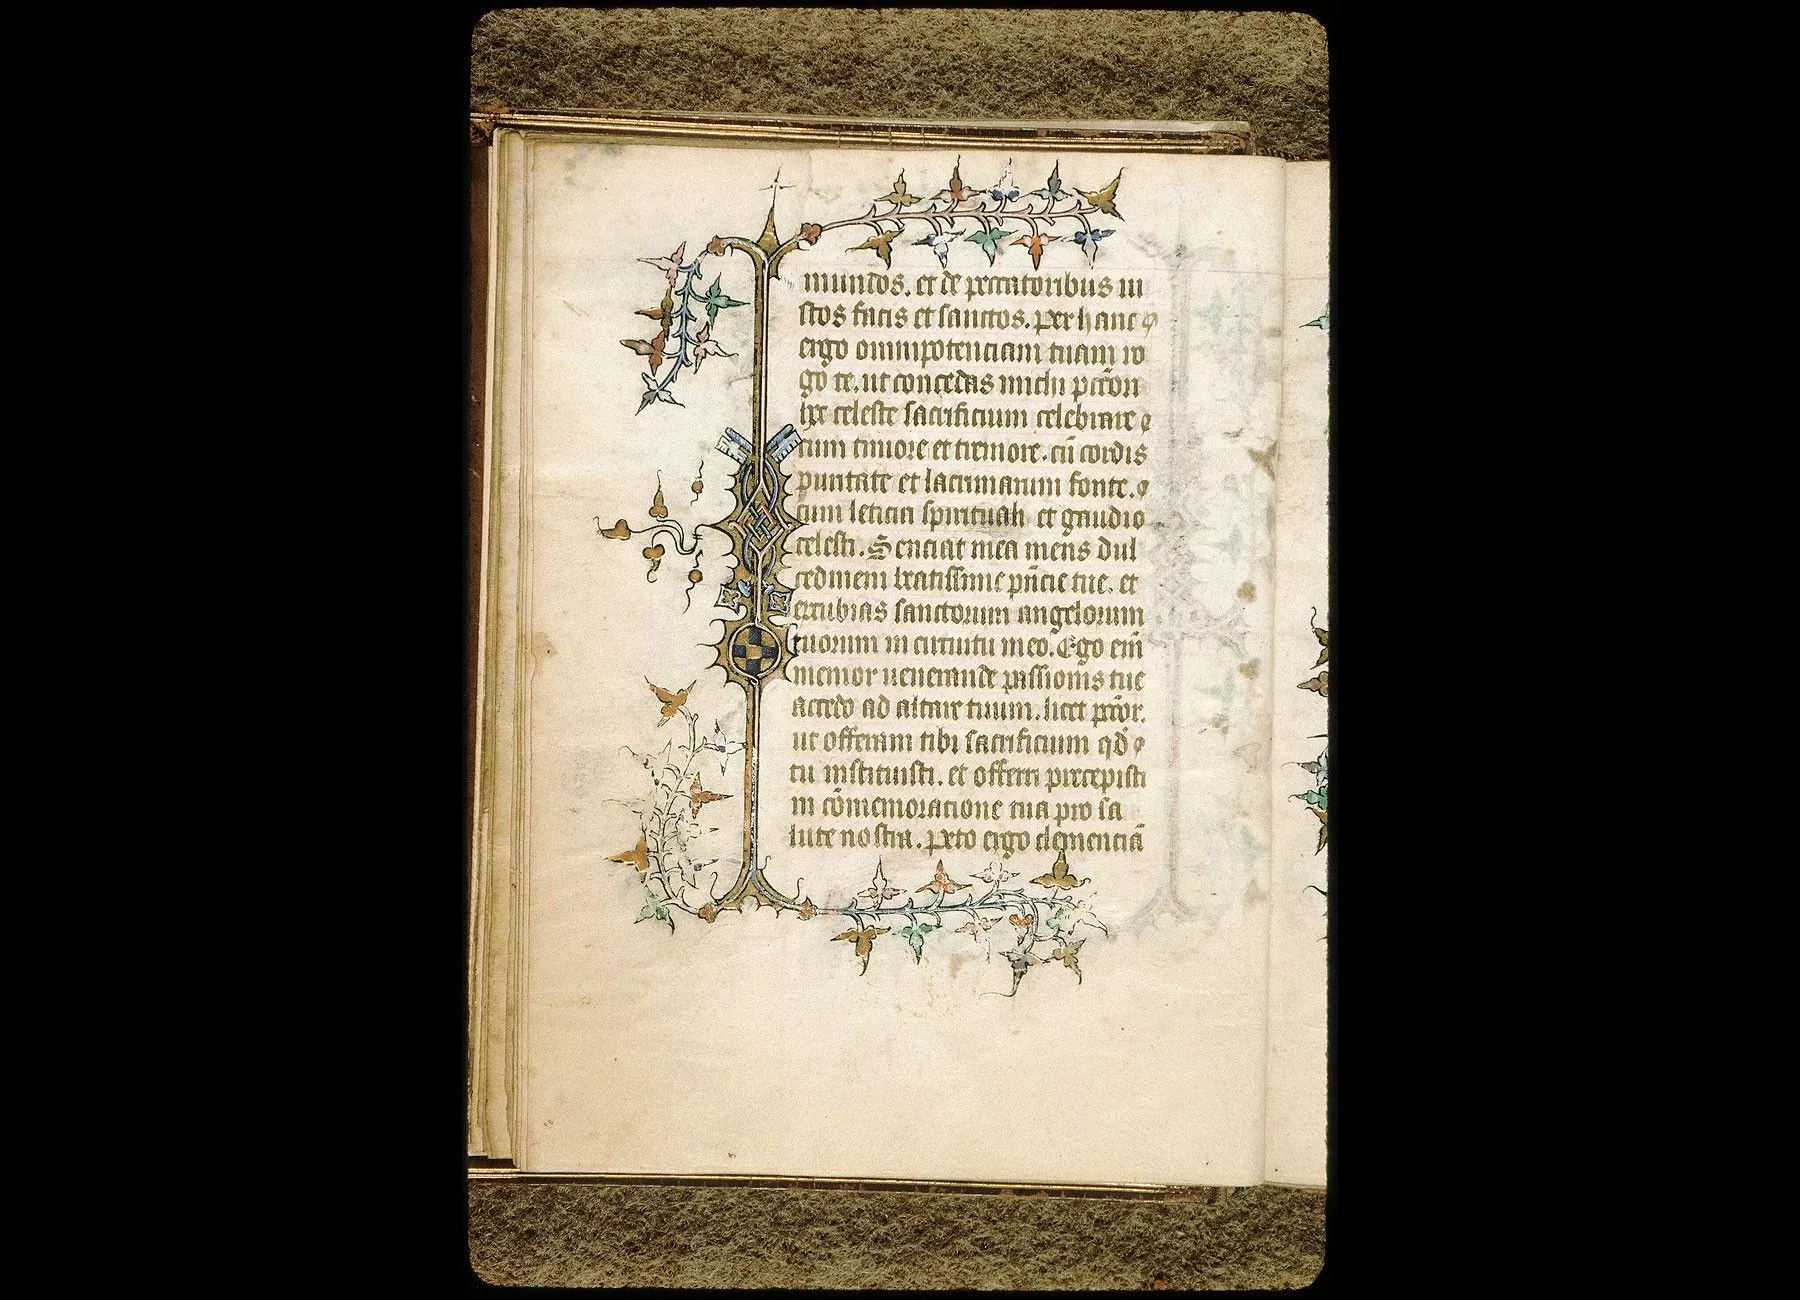 mundos. et de peccatoribus iu
stos facis et sanctos. per hanc
ergo omnipotenciam tuam ro
go te. ut concedas michi pctori
hoc celeste sacrificium celebrare
cum timore et tremore. cū cordis
puritate et lacrimarum fonte.
cum leticia spirituali et gaudio
celesti. Senciat mea mens dul
cedinem beatissime pñcie tue. et
excubias sanctorum angelorum
tuorum in circuitu meo. Ego eni̅
memor uenerande passionis tue
accedo ad altare tuum. licet pctor.
ut offeram tibi sacrificium qd̄
tu instituisti. et offerri precepisti
in cōmemoratione tua pro sa
lute nostra. peto ergo clementiā